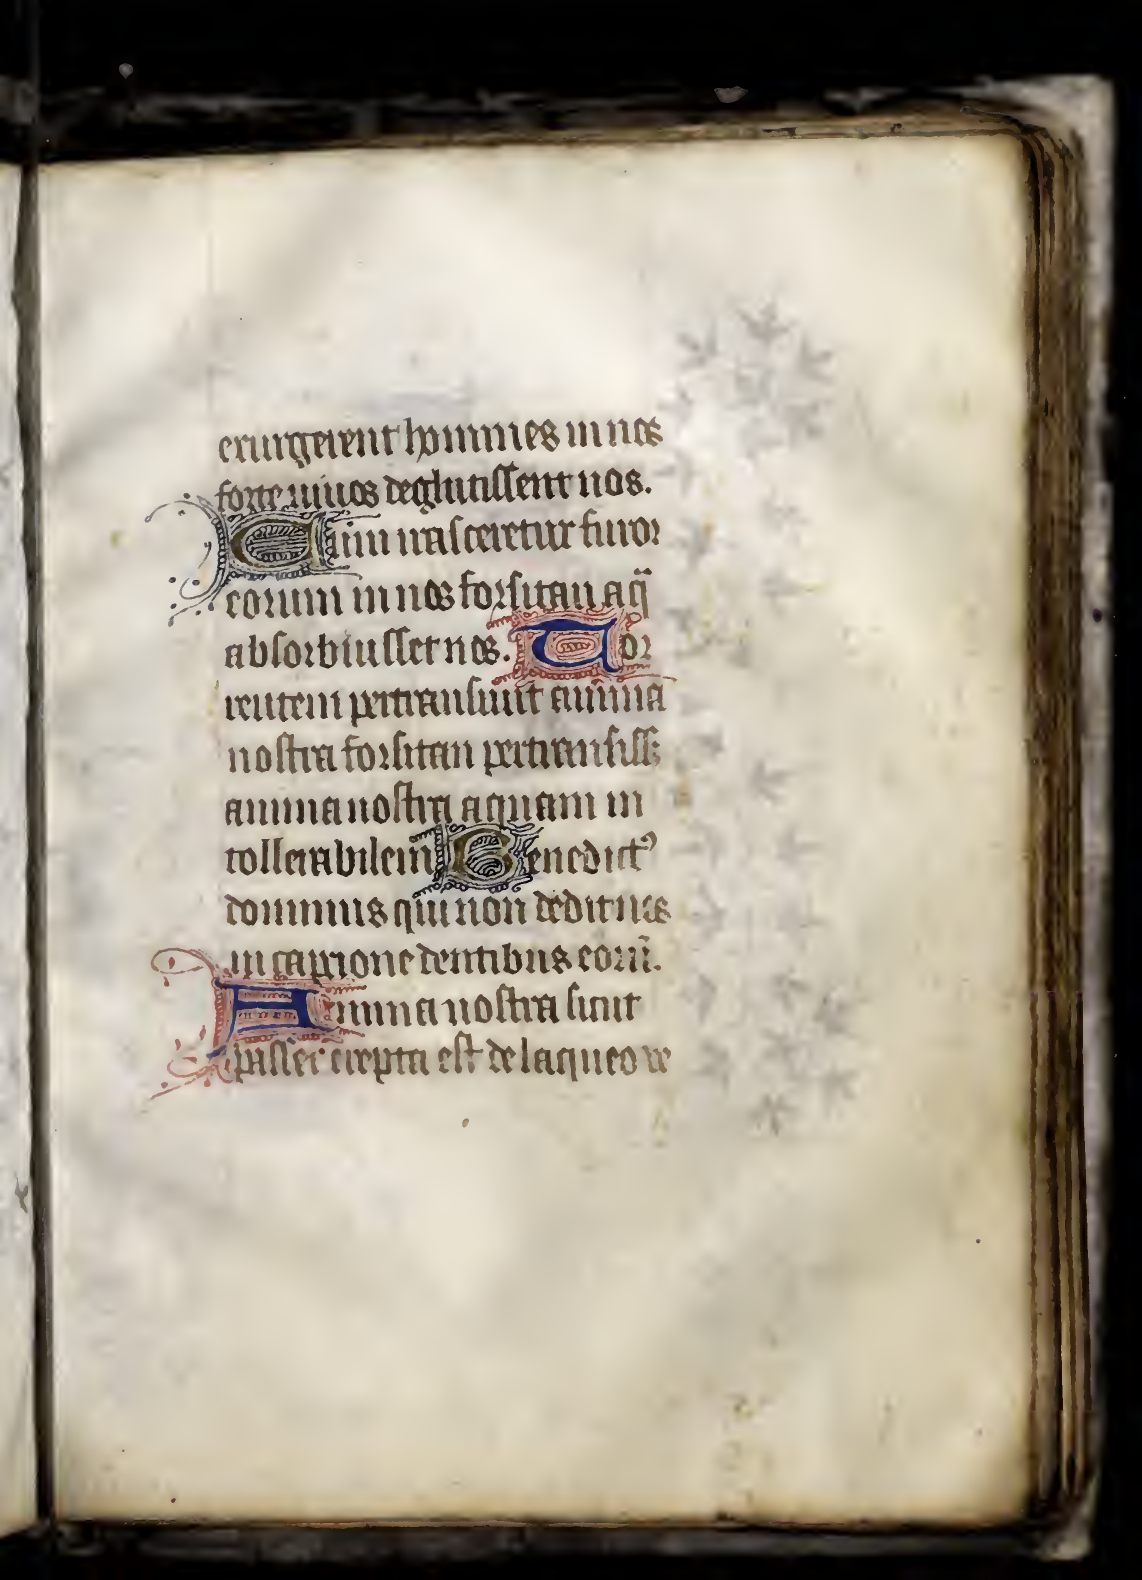 exurgerent homines in nos
forte uiuos deglutissent nos.
Cum irasceretur furor
eorum in nos forsitan aq̃
absorbuisset nos. Tor
rentem pertransiuit anima
nostra forsitan pertransiss;
anima nostra aquam in
tollerabilem Benedictꝰ
dominus qui non dedit nos
in captione dentibus eorũ.
Anima nostra sicut
passer erepta est de laqueo ve